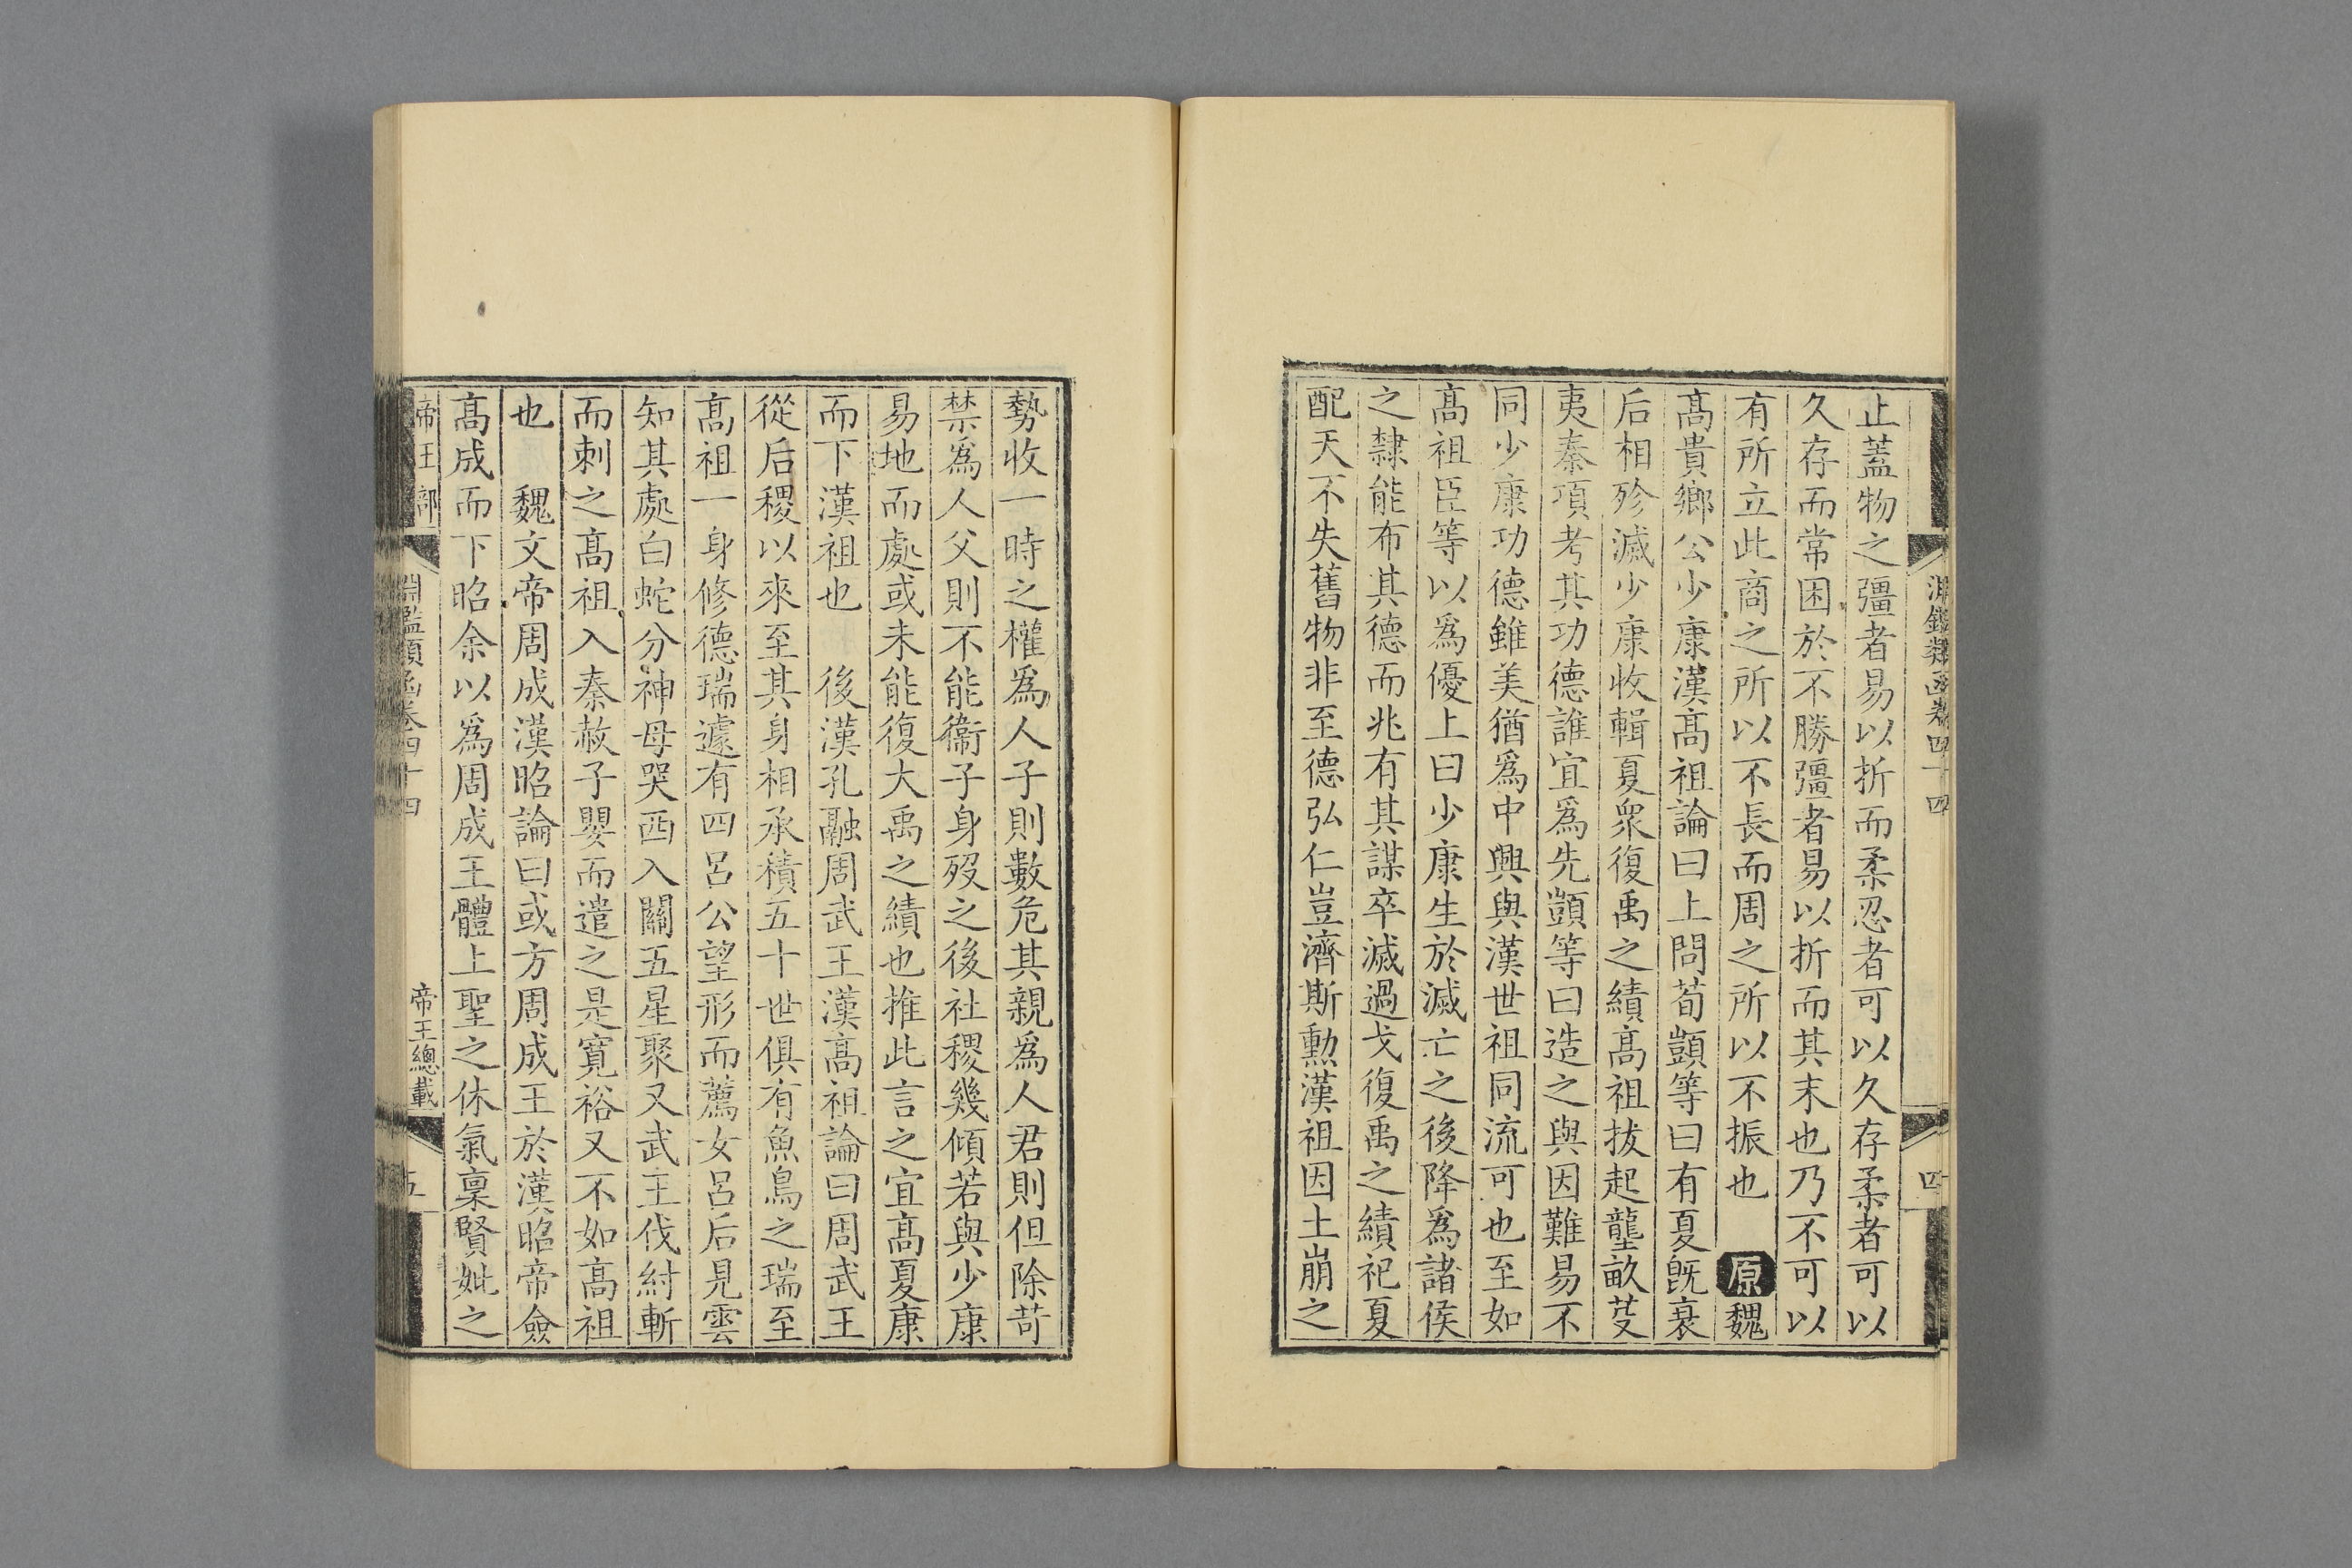 淵鑑類函卷四十四
四
止蓋物之彊者易以折而柔忍者可以久存柔者可以
久存而常困於不勝彊者易以折而其末也乃不可以
有所立此商之所以不長而周之所以不振也　原魏
高貴鄉公少康漢高祖論曰上問荀顗等曰有夏旣衰
后相殄滅少康收輯夏衆復禹之績高祖拔起壟畝芟
夷秦項考其功德誰宜爲先顗等曰造之與因難易不
同少康功德雖美猶爲中興與漢世祖同流可也至如
高祖臣等以爲優上曰少康生於滅亡之後降爲諸侯
之隸能布其德而兆有其謀卒滅過戈復禹之績祀夏
配天不失舊物非至德弘仁豈濟斯勳漢祖因土崩之
勢收一時之權爲人子則數危其親爲人君則但除苛
禁爲人父則不能衞子身歿之後社稷幾傾若與少康
易地而處或未能復大禹之績也推此言之宜高夏康
而下漢祖也　後漢孔融周武王漢高祖論曰周武王
從后稷以來至其身相承積五十世俱有魚鳥之瑞至
高祖一身修德瑞遽有四呂公望形而薦女呂后見雲
知其處白蛇分神母哭西入關五星聚又武王伐紂斬
而刺之高祖入秦赦子嬰而遣之是寬裕又不如高祖
也　魏文帝周成漢昭論曰或方周成王於漢昭帝僉
高成而下昭余以爲周成王體上聖之休氣稟賢妣之
帝王部
淵鑑類函卷四十四
帝王總載
五